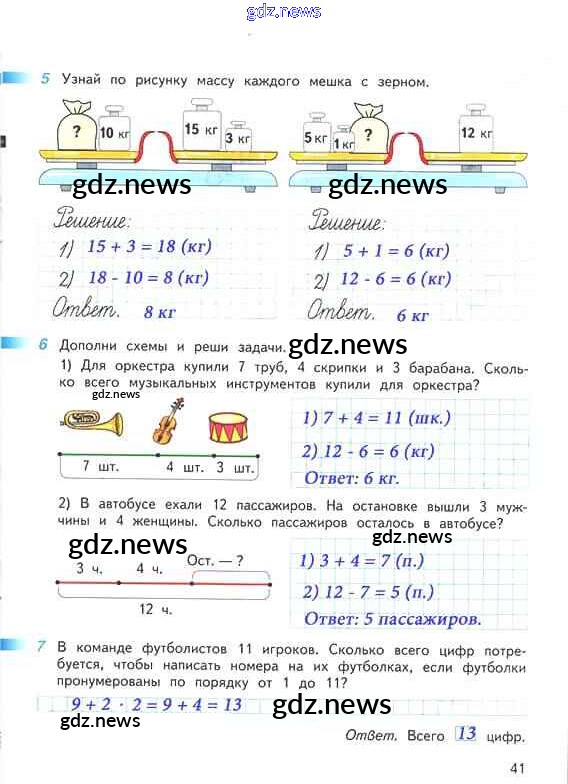 gdz.news
5 Узнай по рисунку массу каждого мешка с зерном.
? 10 кг 15 кг 3 кг 5 кг 1 кг ? 12 кг
gdz.news gdz.news
Решение: Решение:
1) 15 + 3 = 18 (кг) 1) 5 + 1 = 6 (кг)
2) 18 - 10 = 8 (кг) 2) 12 - 6 = 6 (кг)
Ответ. 8 кг Ответ. 6 кг
6 Дополни схемы и реши задачи.
gdz.news
1) Для оркестра купили 7 труб, 4 скрипки и 3 барабана. Сколь-
ко всего музыкальных инструментов купили для оркестра?
gdz.news
7 шт. 4 шт. 3 шт.
1) 7 + 4 = 11 (шк.)
2) 12 - 6 = 6 (кг)
Ответ: 6 кг.
gdz.news
2) В автобусе ехали 12 пассажиров. На остановке вышли 3 муж-
чины и 4 женщины. Сколько пассажиров осталось в автобусе?
gdz.news gdz.news
3 ч. 4 ч. Ост. — ?
12 ч.
1) 3 + 4 = 7 (п.)
2) 12 - 7 = 5 (п.)
Ответ: 5 пассажиров.
7 В команде футболистов 11 игроков. Сколько всего цифр потре-
буется, чтобы написать номера на их футболках, если футболки
пронумерованы по порядку от 1 до 11?
9 + 2 · 2 = 9 + 4 = 13
gdz.news gdz.news
gdz.news
Ответ. Всего 13 цифр.
41